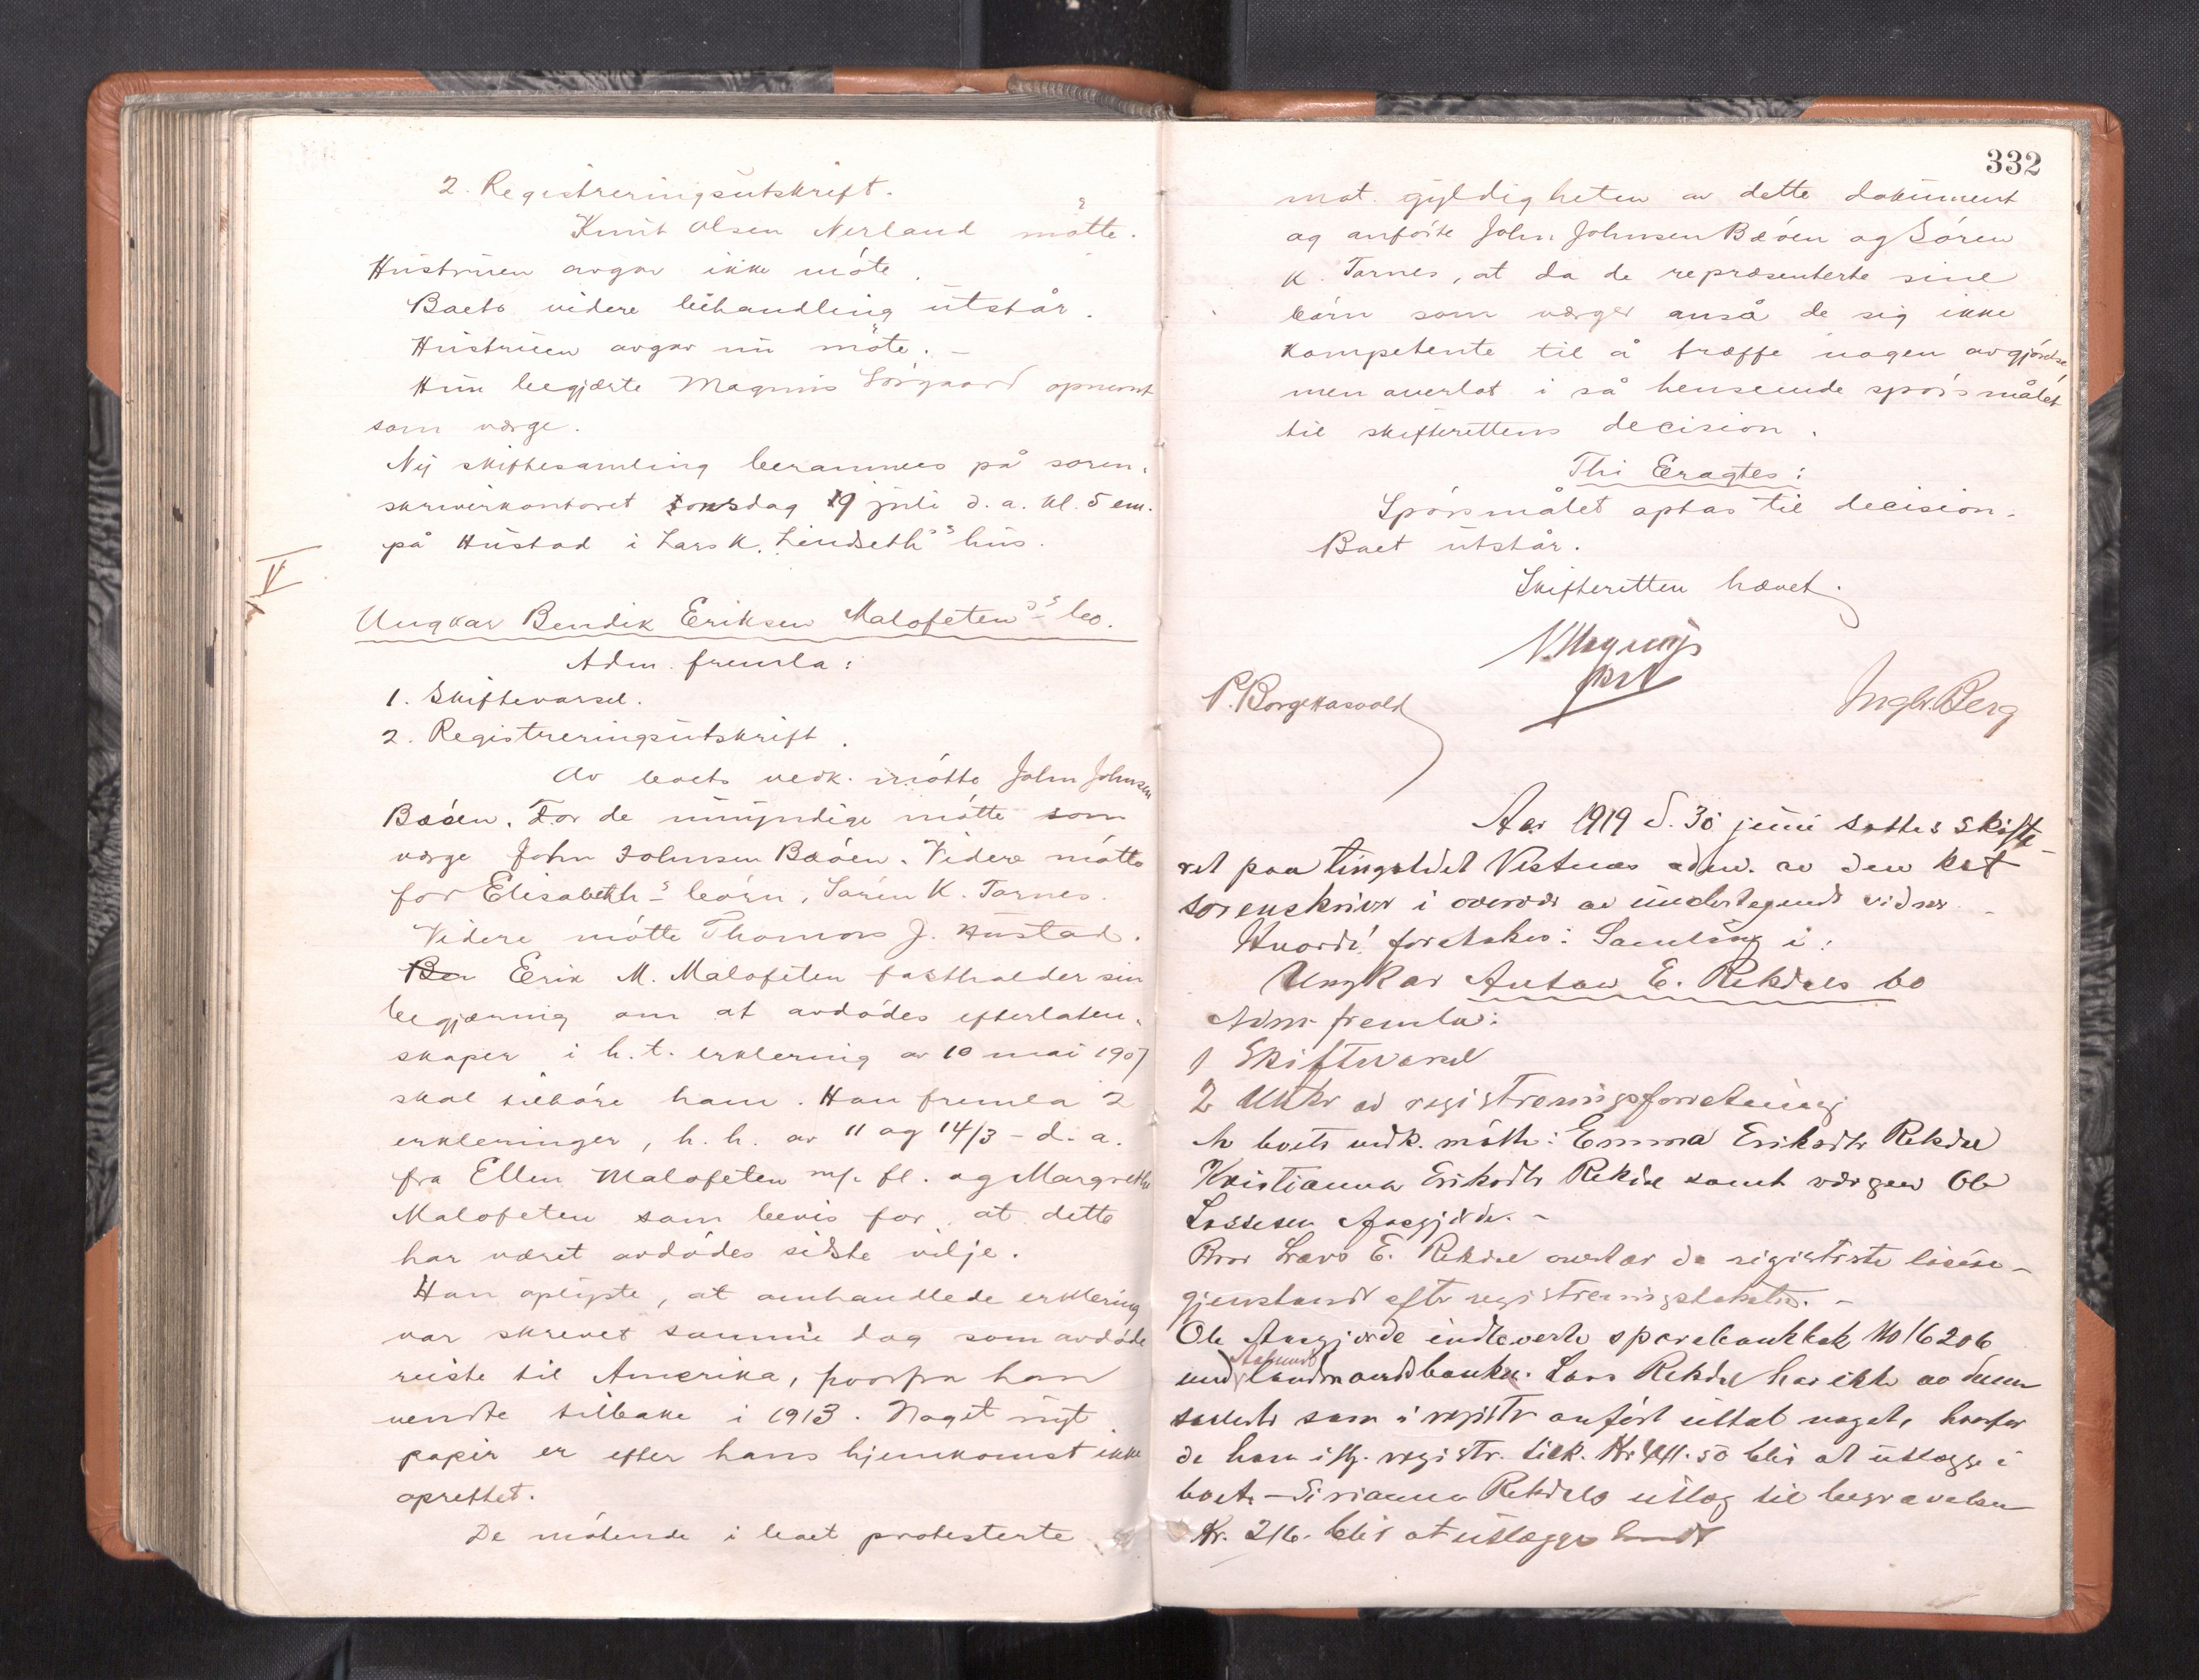 2. Registreringsutskrift.
Knut Olsen Nerland møtte.
Hustruen avgav ikke møte.
Boets videre behandling utstår.
Hustruen avgav nu møte. –
Hun begjærte Magnus Sørgaard opnevnt
som værge.
Ny skiftesamling berammes på soren-
skriverkontoret onsdag 19 juli d. a. kl. 5 em.
på Hustad i Lars K. Lindseth's hus.
V
Ungkar Bendik Eriksen Malofeten's bo.
Adm. fremla:
1. Skiftevarsel.
2. Registreringsutskrift.
Av boets vedk. møtte John Johnsen
Bøen. For de umyndige møtte som
værge John Johnsen Bøen. Videre møtte
for Elisabeth's børn, Søren K. Tornes.
Videre møtte Thomas J. Hustad.
Erik M. Malofeten fastholder sin
begjæring om at avdødes efterlaten-
skaper i h. t. erklering av 10 mai 1907
skal tilhøre ham. Han fremla 2
erkleringer, h. h. av 11 og 14/3 – d. a.
fra Ellen Malofeten m. fl. og Margrethe
Malofeten som bevis for at dette
har været avdødes sidste vilje.
Han oplyste, at omhandlede erklering
var skrevet samme dag som avdøde
reiste til Amerika, hvorfra han
vendte tilbake i 1913. Noget nyt
papir er efter hans hjemkomst ikke
oprettet.
De møtende i boet protesterte
332
mot gyldigheten av dette dokument
og anførte John Johnsen Bøen og Søren
K. Tornes, at da de repræsenterte sine
børn som værger anså de sig ikke
kompetente til å træffe nogen avgjørelse
men overlot i så henseende spørsmålet
til skifterettens decision.
Thi Eragtes:
Spørsmålet optas til decision.
Boet utstår.
Skifteretten hævet.
P. Borgekasvold
Ingbr. Berg
Aar 1919 d. 30 juni sattes skifte-
ret paa tingstedet Vestnes adm. av den kst
sorenskriver i overvær av undertegnede vidner.
Hvorda foretokes: Samling i:
Ungkar Anton E. Rekdals bo
Adm fremla:
1 Skiftevarsel
2 Utskr av registreringsforretning
Av boets vedk. møtte: Emma Eriksdtr Rekdal
Kristianna Eriksdtr Rekdal samt værgen Ole
Lassesen Aasgjerde. –
Bror Lars E. Rekdal overtar de registrerte løsøre-
gjenstande efter registreringstaksten. –
Ole Aasgjerde indleverte sparebankbok No 16206
landmandsbanken. Lars Rekdal har ikke av denne
som i registr anført uttat noget, hvorfor
de ham iflg. registr. tilk. Kr. 441.50 blir at utlægge i
boet. – Rekdals utlæg til begravelsen
Kr. 216. blir at utlægge